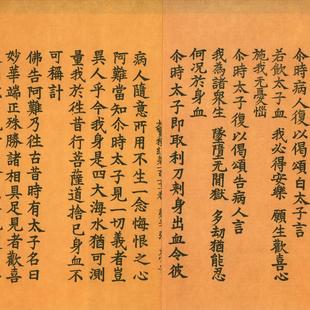 尒時病人復以偈頌白太子言
若飲太子血 我必得安樂 願生歡喜心
施我无憂惱
尒時太子復以偈頌告病人言
我為諸衆生 墜墮无間獄 多劫猶能忍
何況於身血
尒時太子即取利刀刺身出血令彼
病人隨意所用不生一念悔恨之心
阿難當知尒時太子見一切義者豈
異人乎今我身是四大海水猶可測
量我於往昔行菩薩道捨己身血不
可稱計
佛告阿難乃往古昔時有太子名曰
妙華端正殊勝諸相具足見者歡喜